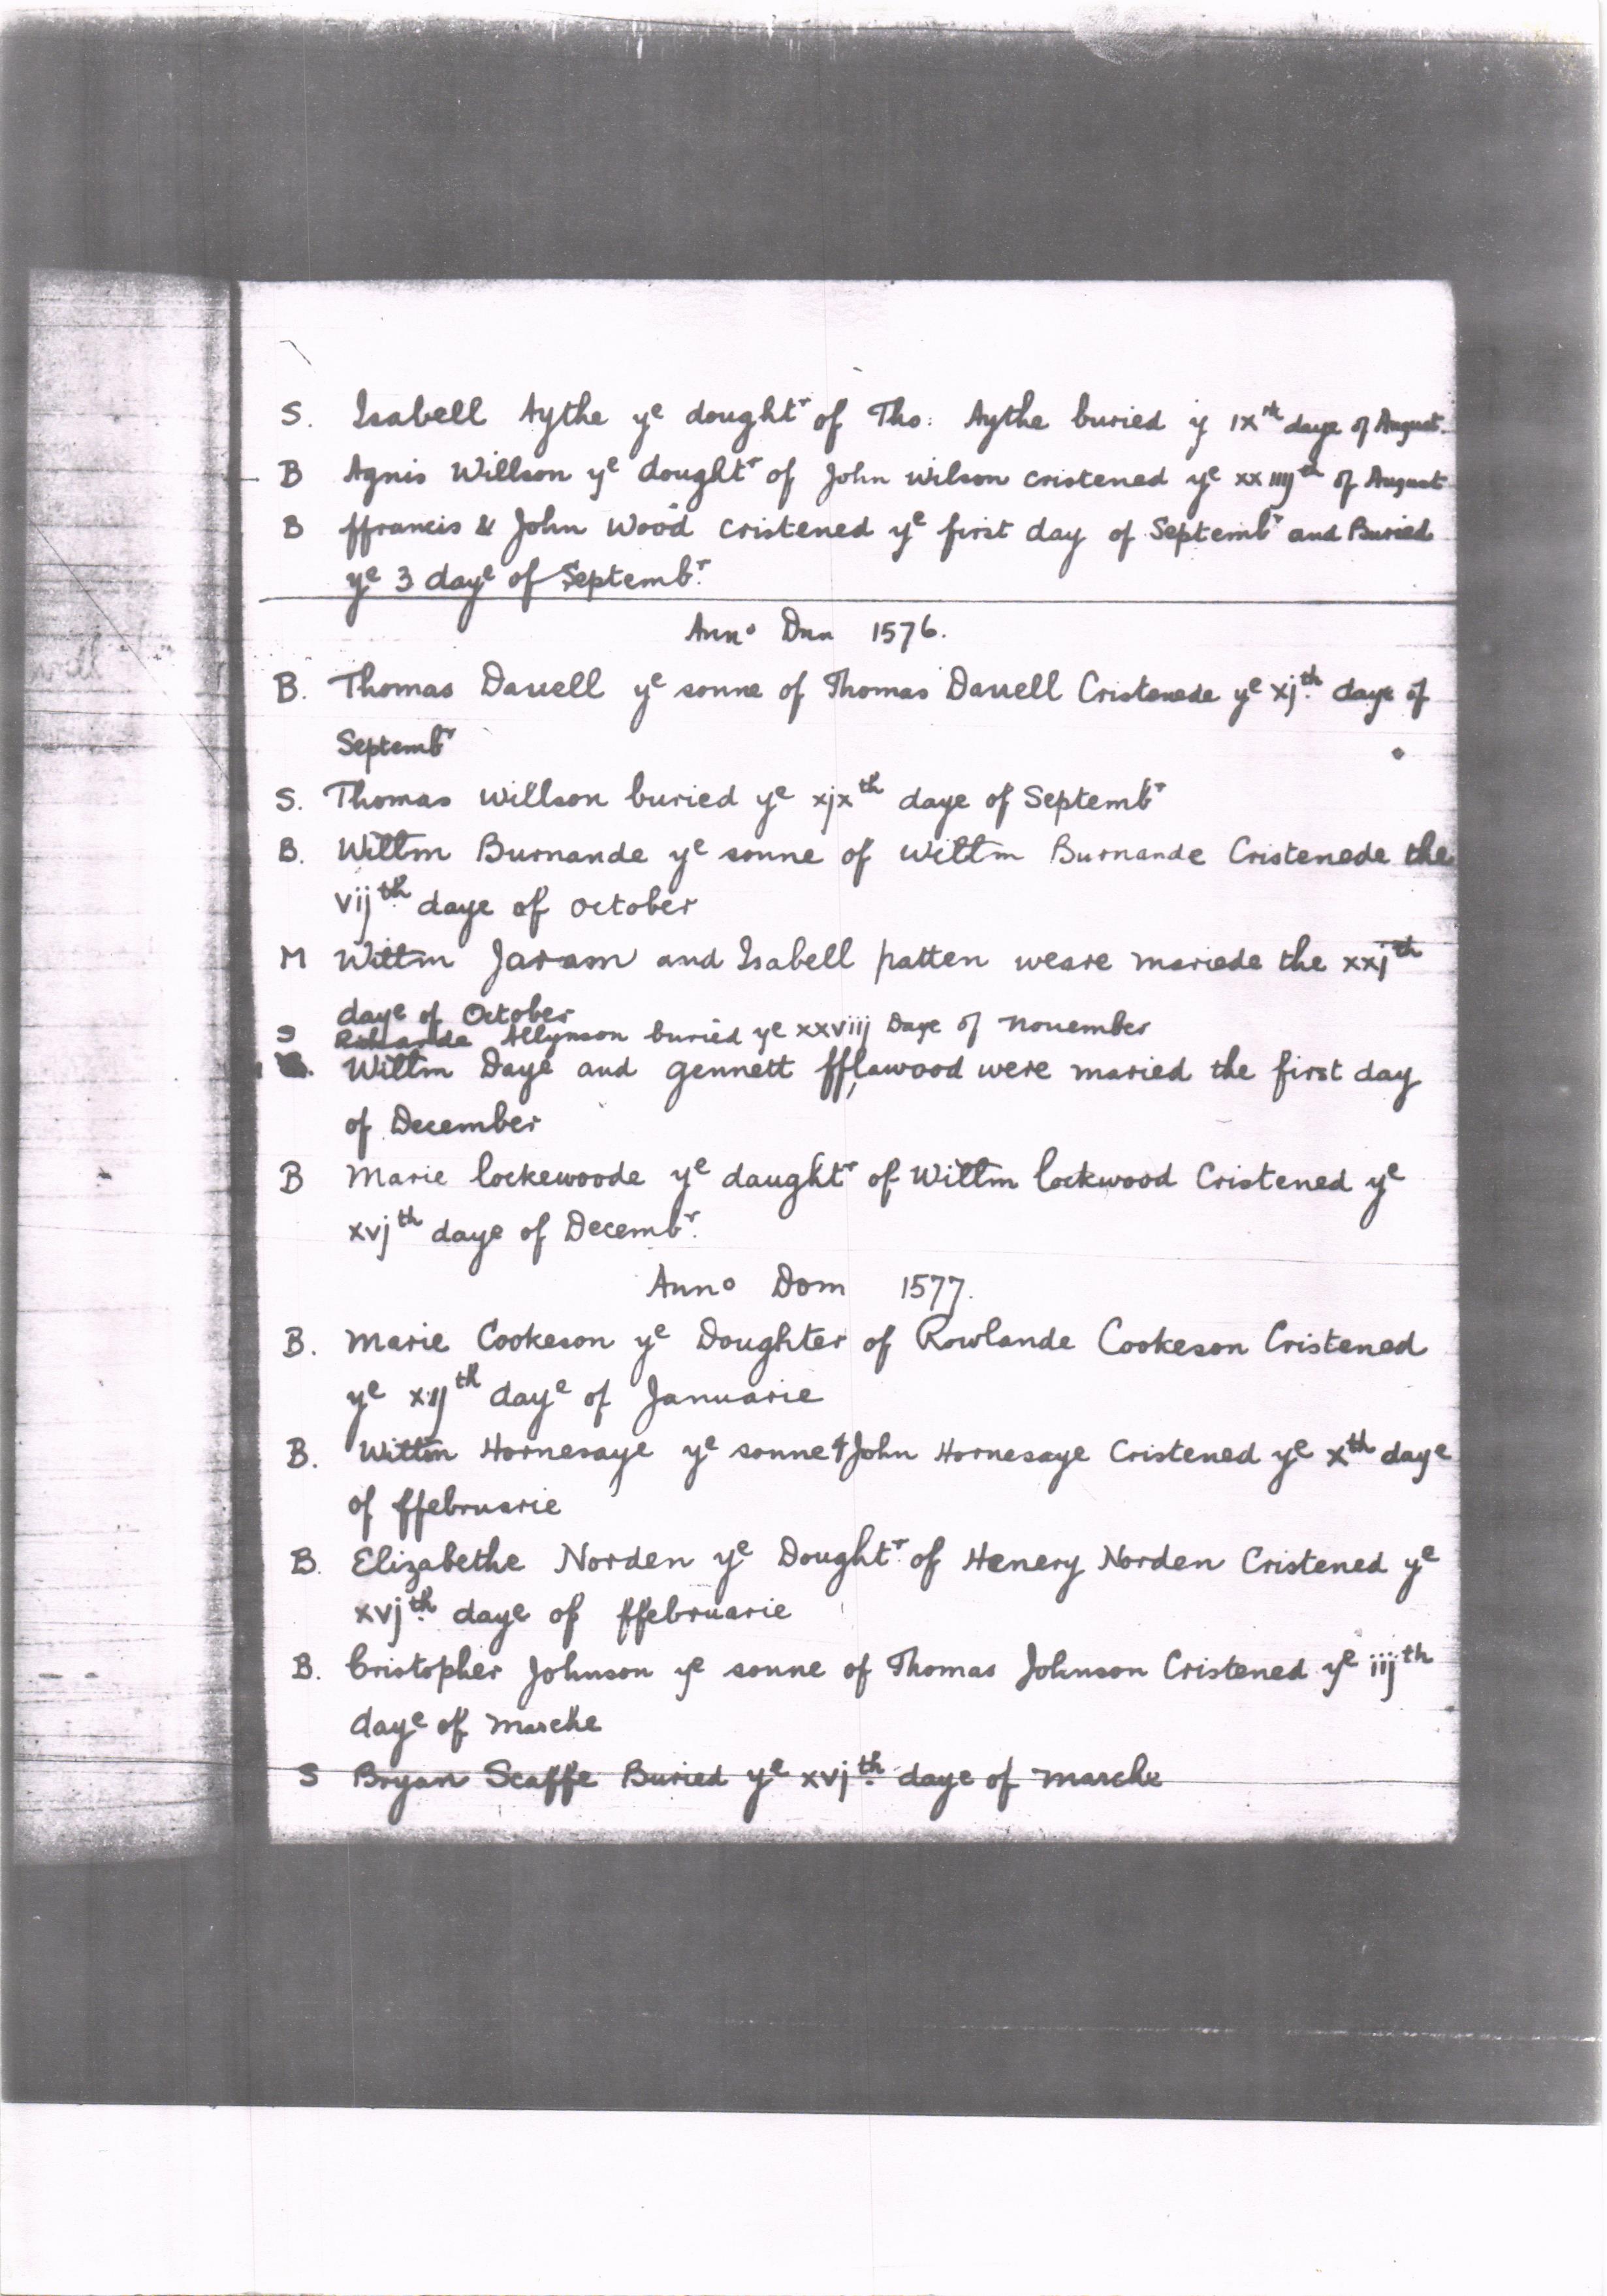 S. Isabell Aythe yᵉ doughtʳ of Tho: Aythe buried y ixᵗʰ daye of August.
B Agnis Willson yᵉ doughtʳ of John Wilson cristened yᵉ xxiiijᵗʰ of August
B ffrancis & John Wood cristened yᵉ first day of Septembʳ and Buried
yᵉ 3 dayᵉ of Septembʳ.
Annº Dnn 1576.
B. Thomas Dauell yᵉ sonne of Thomas Dauell Cristenede yᵉ xj.ᵗʰ daye of
Septembʳ
S. Thomas Willson buried yᵉ xjxᵗʰ daye of Septembʳ
B. Willm Burnande yᵉ sonne of Willm Burnande Cristenede the
vijᵗʰ daye of October
M Willm Jaram and Isabell patten weare mariede the xxjᵗʰ
daye of October
S Richarde Allynson buried yᵉ xxviij Daye of November
Willm Daye and Gennett fflawood were maried the first day
of December
B Marie lockewoode yᵉ daughtʳ of Willm lockwood Cristened yᵉ
xvjᵗʰ daye of Decembʳ.
Annº Dom 1577.
B. Marie Cookeson yᵉ Doughter of Rowlande Cookeson Cristened
yᵉ xijᵗʰ dayᵉ of Januarie
B. Willm Hornesaye yᵉ sonne of John Hornesaye Cristened yᵉ xᵗʰ daye
of ffebruarie
B. Elizabethe Norden yᵉ Doughtʳ. of Henery Norden Cristened yᵉ
xvj.ᵗʰ daye of ffebruarie
B. Cristopher Johnson yᵉ sonne of Thomas Johnson Cristened yᵉ iijᵗʰ
dayᵉ of Marche
S Bryan Scaffe Buried yᵉ xvj.ᵗʰ daye of Marche